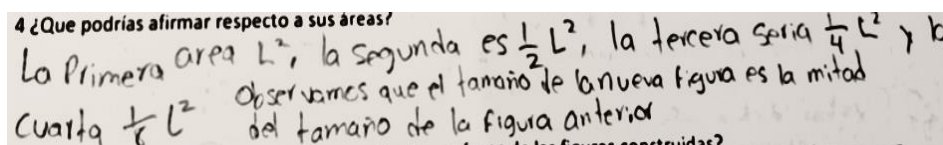 4 ¿Que podrías afirmar respecto a sus áreas?
La Primera area L², la segunda es 1/2 L², la tercera seria 1/4 L² y
Cuarta L² Observamos que el tamaño de la nueva figura es la mitad
del tamaño de la figura anterior